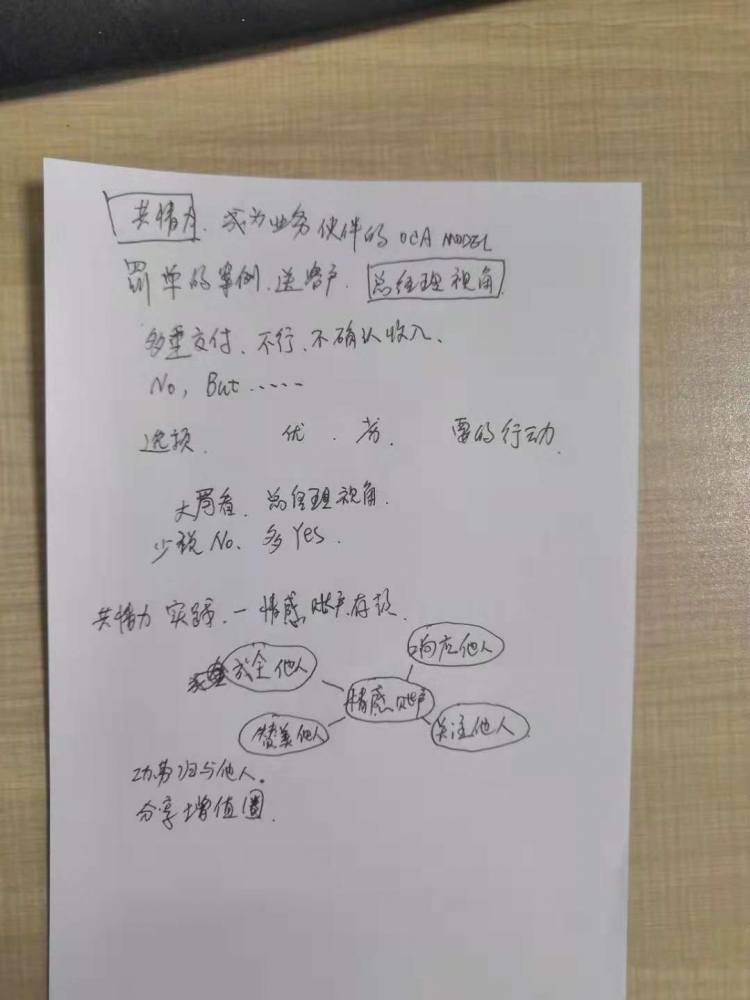 共情力. 成为业务伙伴的 OCA MODEL
罚单的案例. 送客户. 总经理视角.
多重交付、不行、不确认收入、
No, But ......
选项. 优. 劣. 要的行动.
大局看. 总经理视角.
少说 No. 多 Yes.
共情力 实践. — 情感账户存款.
响应他人
成全他人
情感账户
赞美他人
关注他人
功劳归与他人.
分享增值圈.